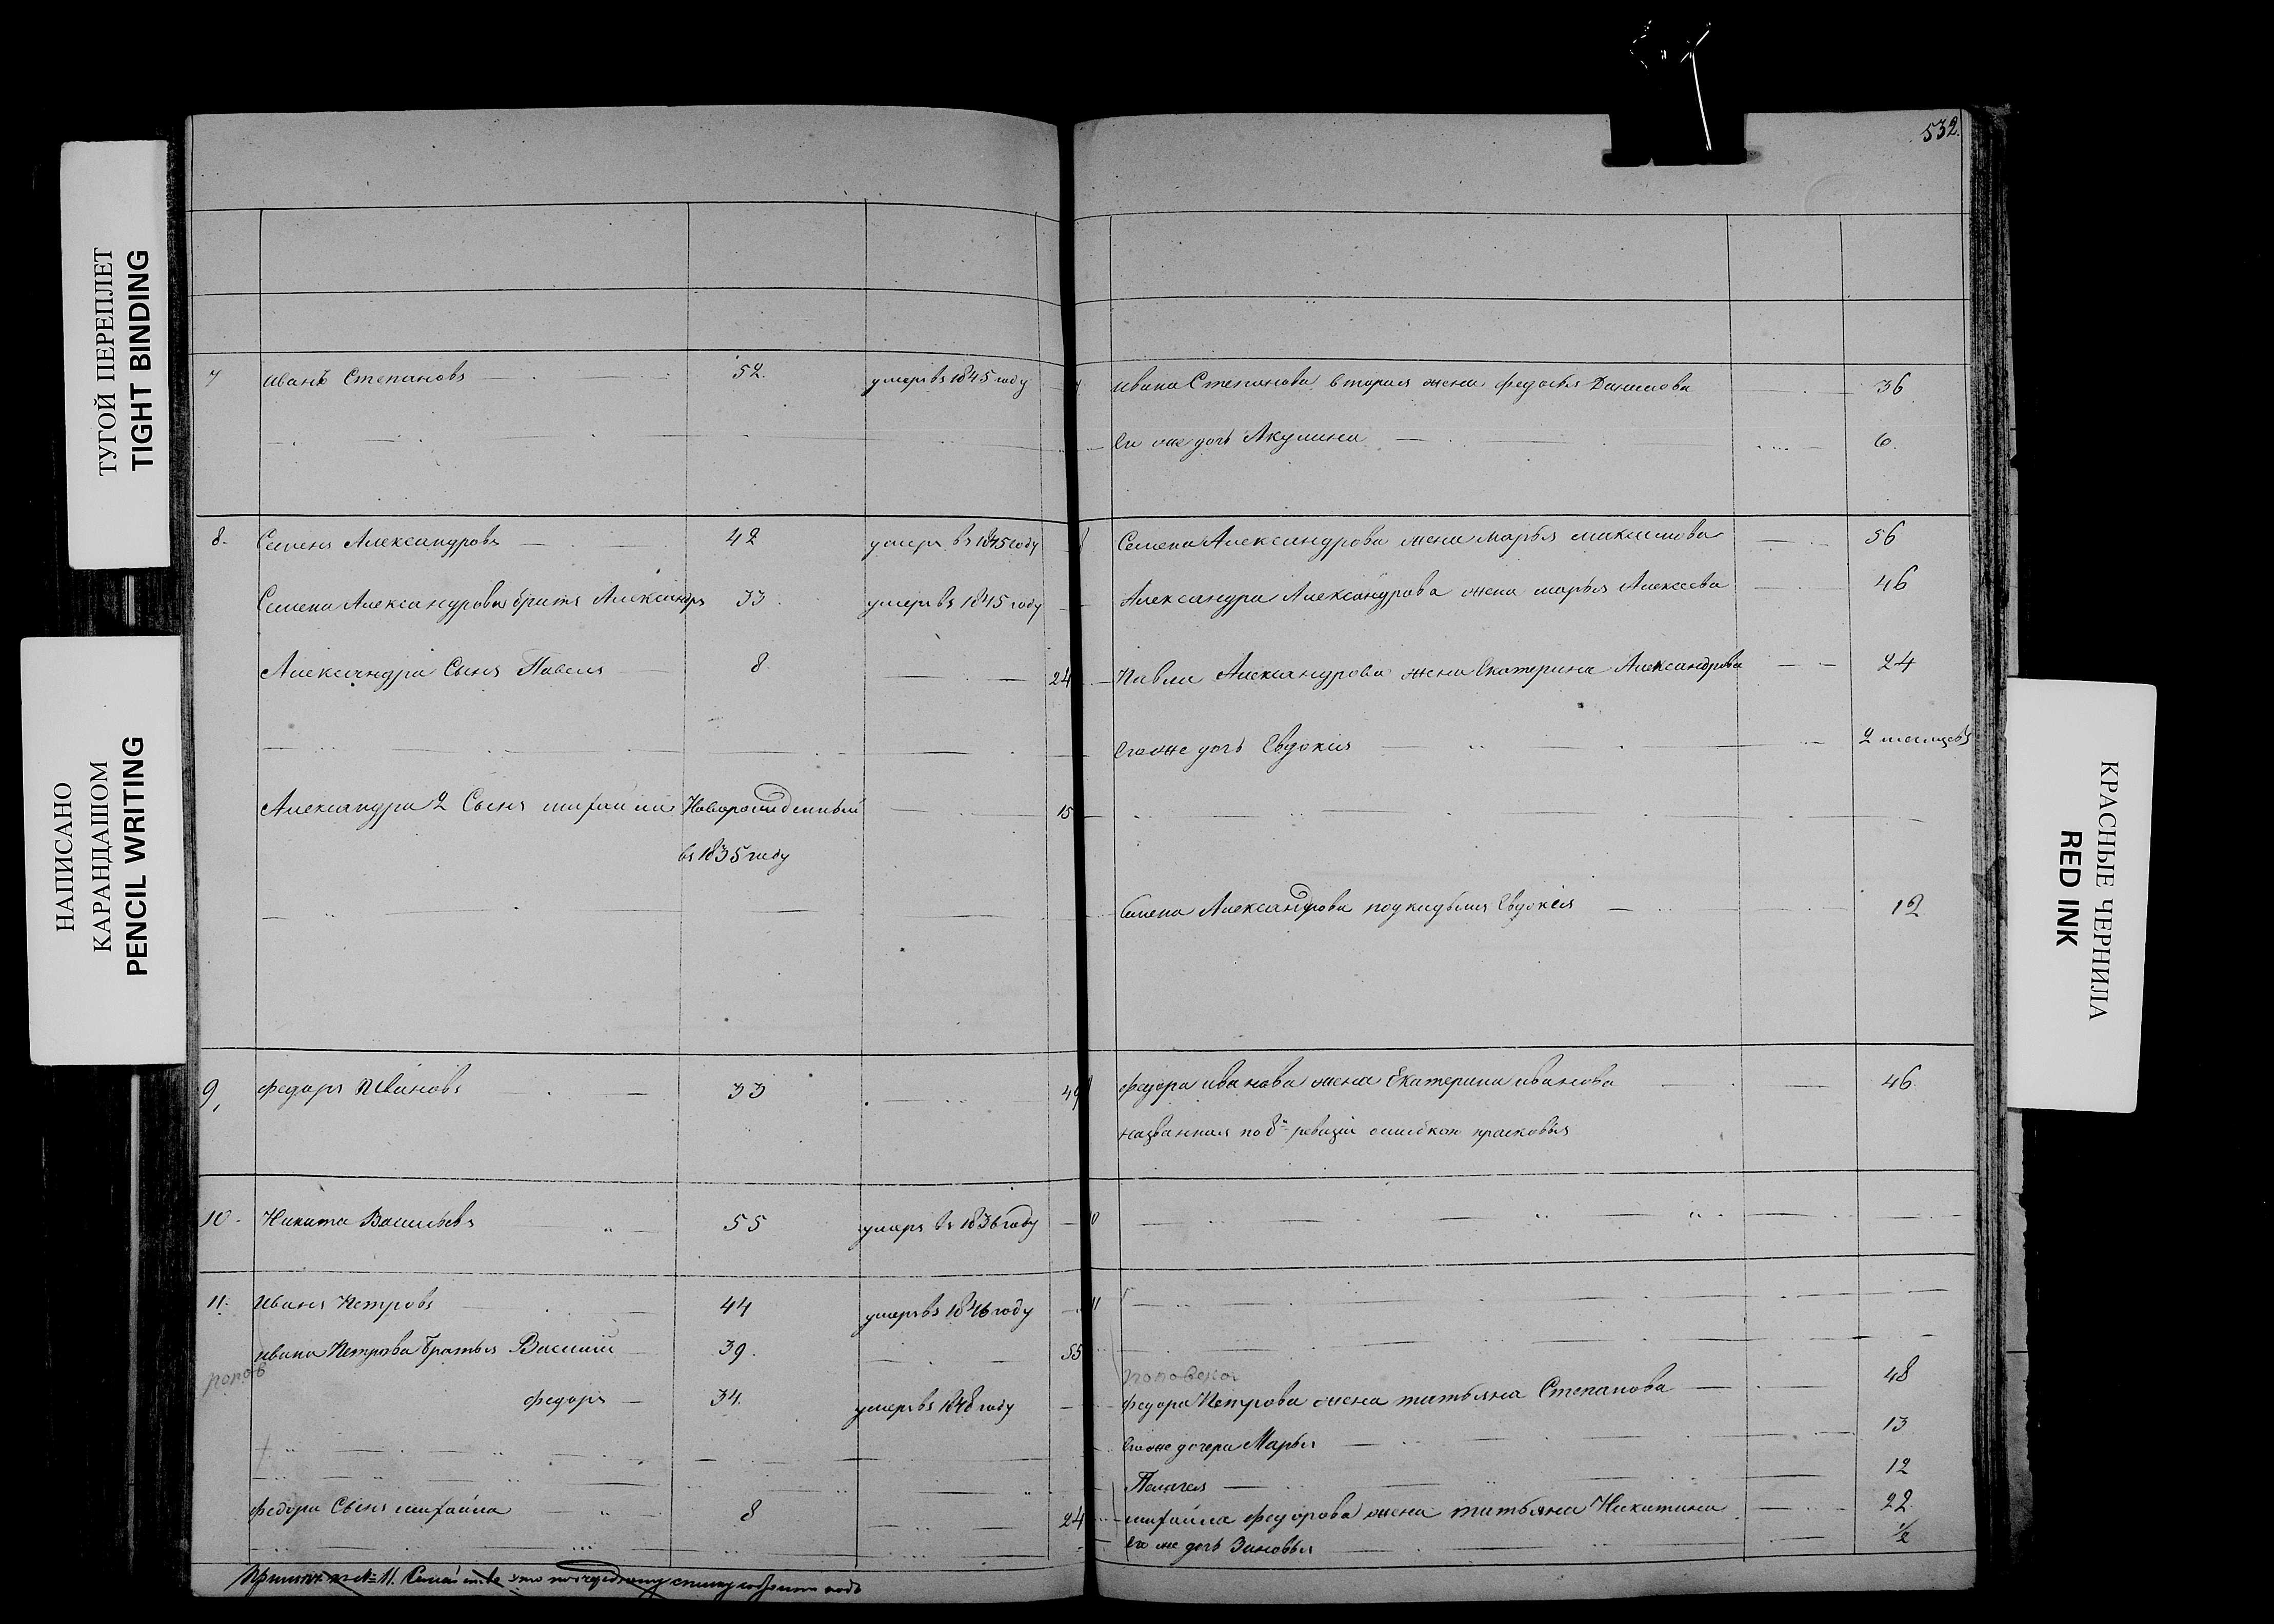 ТУГОЙ ПЕРЕПЛЕТ
TIGHT BINDING
НАПИСАНО
КАРАНДАШОМ
PENCIL WRITING
КРАСНЫЕ ЧЕРНИЛА
RED INK
532.
7 Иванъ Степановъ 52. умеръ въ 1845 году
8. Семенъ Александровъ 42 умеръ въ 1845 году
Семена Александрова братъ Александръ 33 умеръ въ 1845 году
Александра Сынъ Павелъ 8 24
Александра 2 Сынъ михайла Новорожденный 15
въ 1835 году
9, федоръ Ивановъ 33 49
10. Никита Васильевъ 55 умеръ въ 1836 году
11. Иванъ Петровъ 44 умеръ въ 1846 году
ивана Петрова братья Василий 39. 55
попов
федоръ 34. умеръ въ 1848 году
федора Сынъ михайла 8 24
№ 11.
Ивана Степанова вторая жена федосья Данилова 36
Его же дочь Акулина 6.
8 Семена Александрова жена марья максимова 56
Александра Александрова жена марья Алексеева 46
Павла Александрова жена Екатерина Александрова 24
Его же дочь Евдокия 2 месяцовъ
Семена Александрова подкидышъ Евдокія 12
федора иванова жена Екатерина иванова 46
названная по 8й ревизіи ошибкою прасковья
10
11
федора Петрова жена татьяна Степанова 48
Его же дочери Марья 13
Пелагея 12
михайла федорова жена татьяна Никитина 22.
Его же дочь Зиновья 1/2